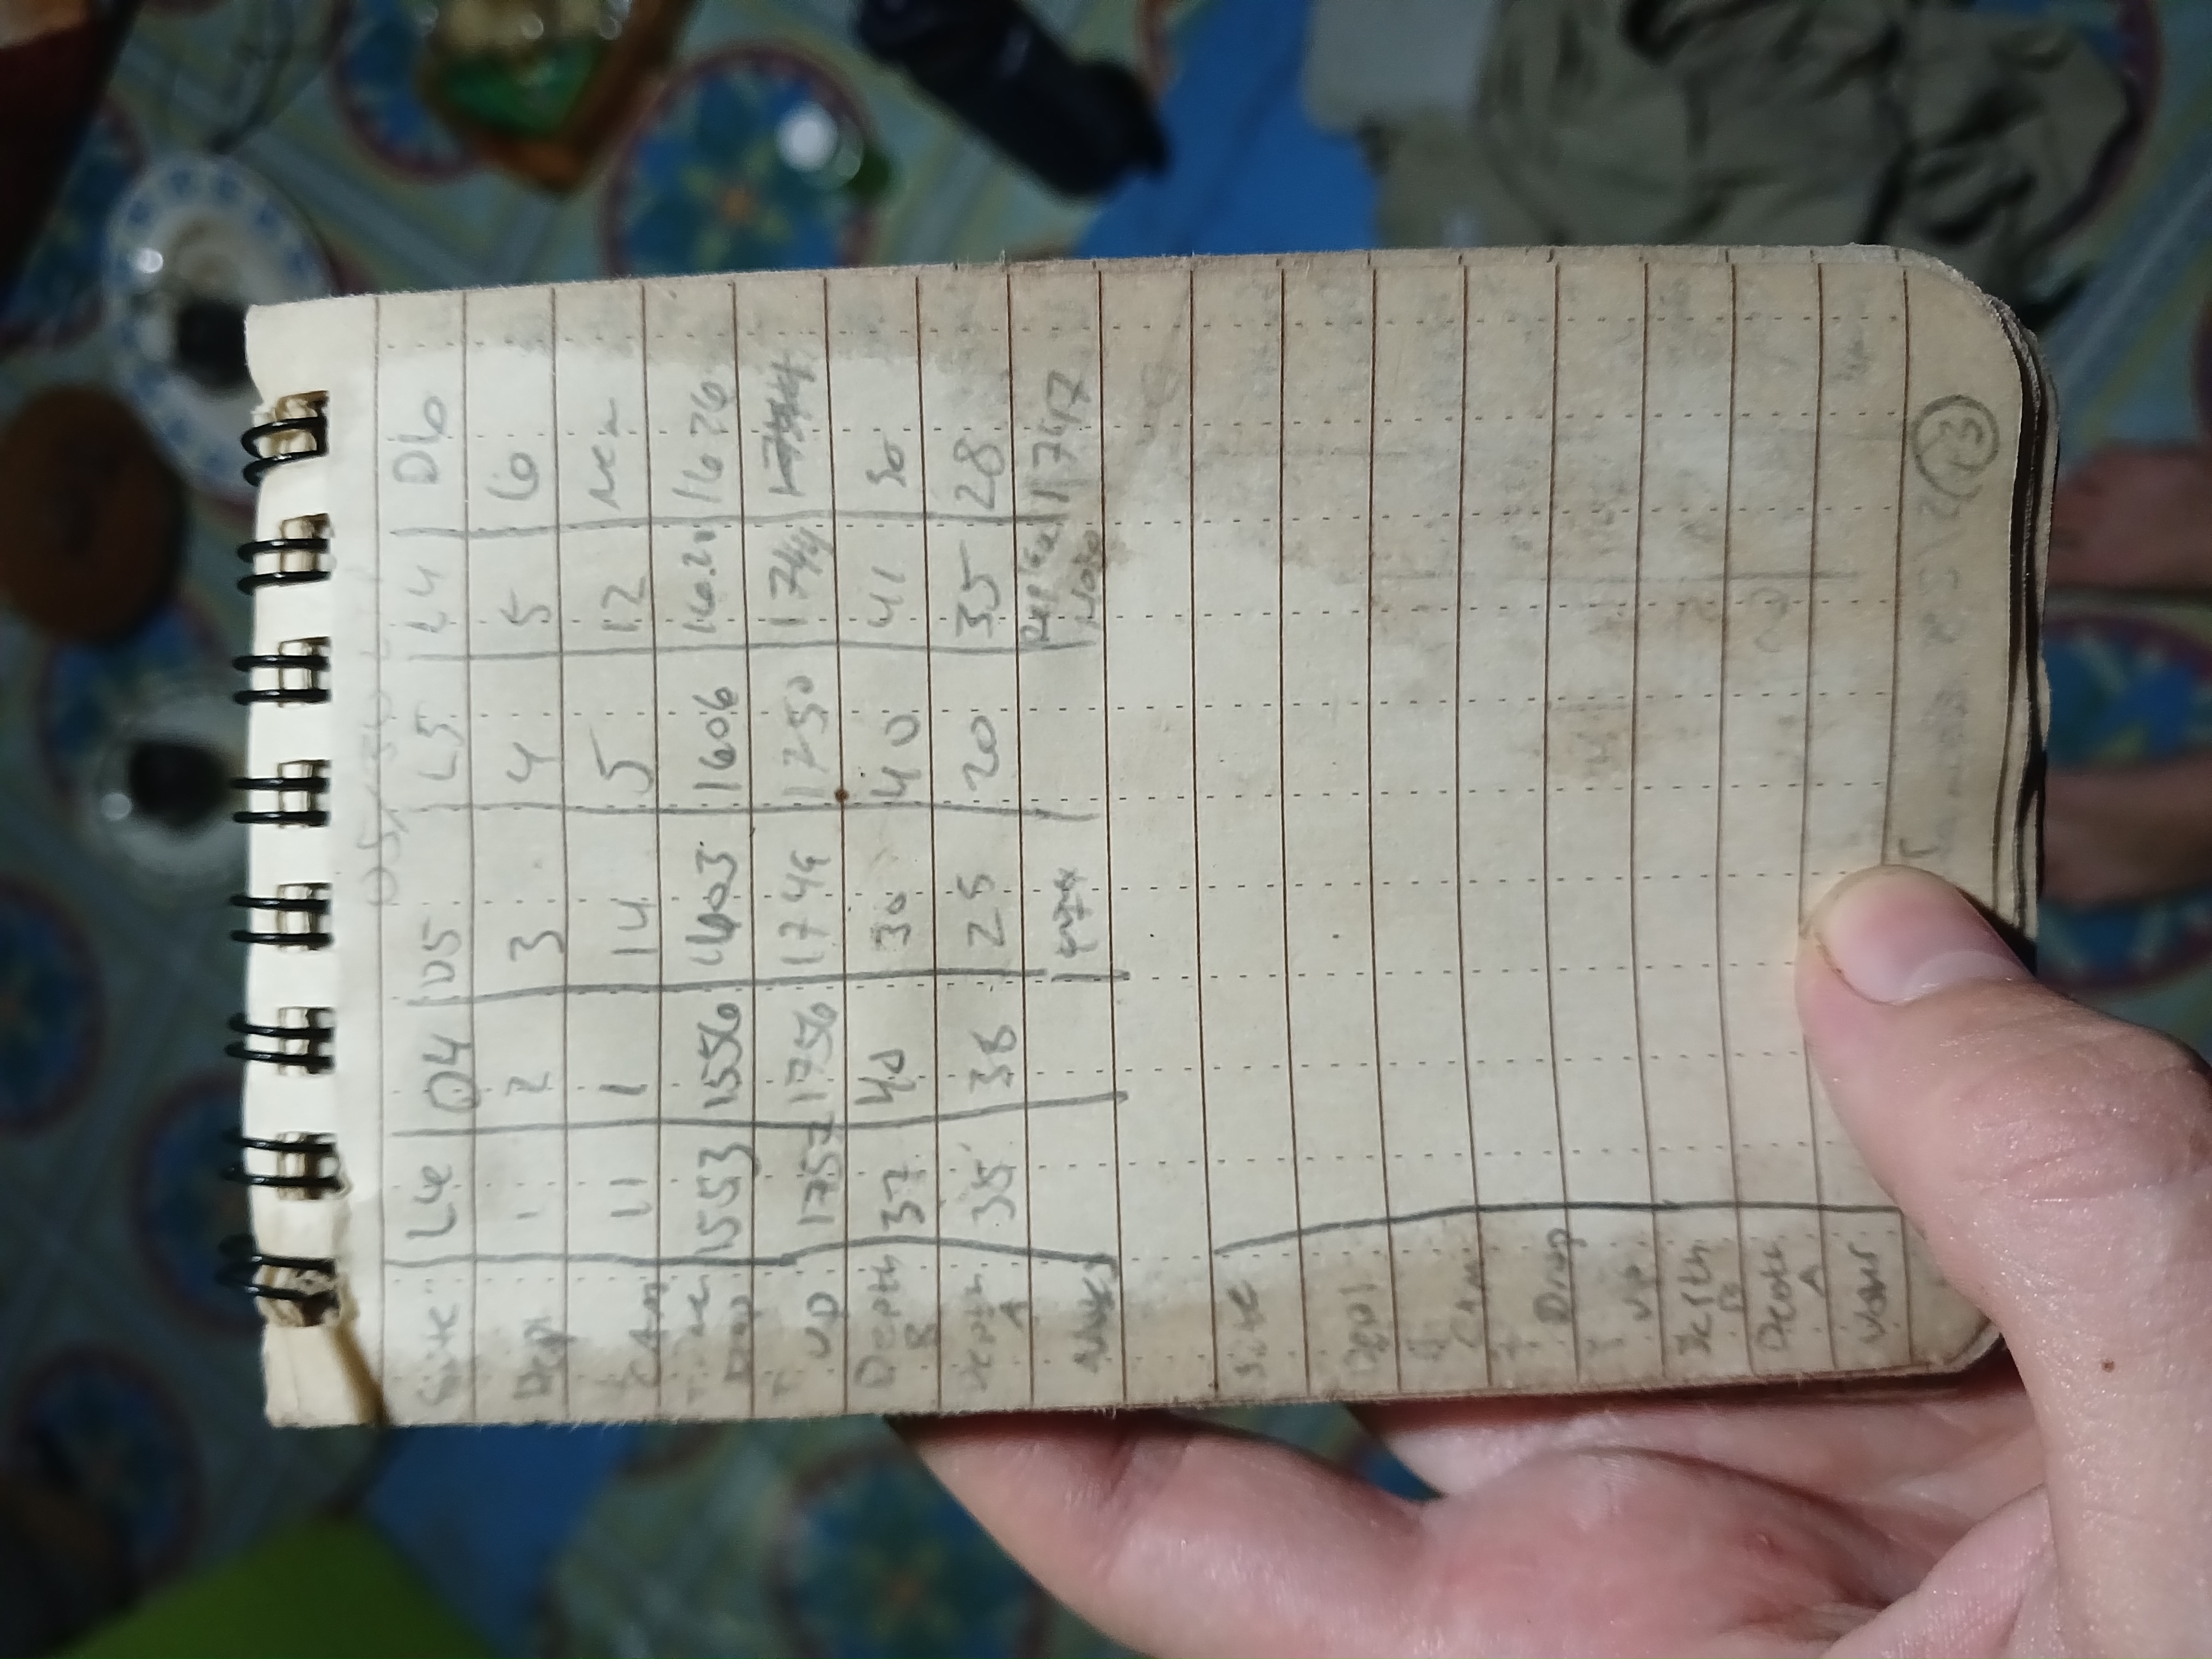 Site L6 D4 D5 L5 L4 D6
Depl 1 2 3 4 5 6
Cam 11 1 14 5 12 New
Drop 1553 1556 1603 1606 1626
Up 1757 1756 1749 1750 1744
Depth B 37 40 30 40 41 30
Depth A 35 36 25 20 35 28
Notes 1747
Site
Depl
Cam
T Drop
T Up
Depth B
Depth A